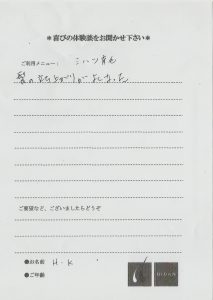 ＊喜びの体験談をお聞かせ下さい＊
ご利用メニュー： ミハツ育毛
髪の立ち上がりがよくなった
ご要望など、ございましたらどうぞ
●お名前 H・K
●ご年齢